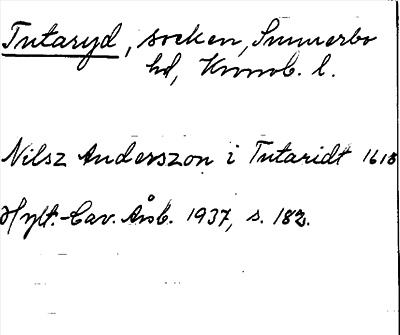 Tutaryd, socken, Sunnerbo
hd, Kronob. l.
Nilsz Anderszon i Tutaridt 1613
Hylt.-Cav. Årsb. 1937, s. 182.